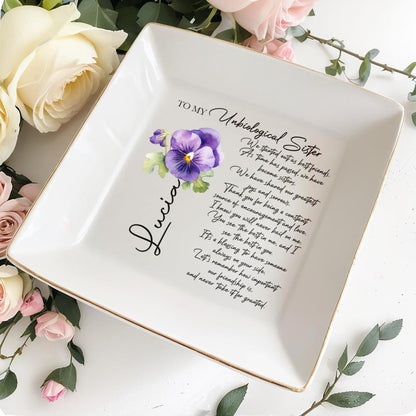 TO MY Unbiological Sister
We started out as best friends.
As time has passed, we have
become sisters.
We have shared our greatest
joys and sorrows.
Thank you for being a constant
source of encouragement and love.
I know you will never bail on me.
You see the best in me, and I
see the best in you.
It's a blessing to have someone
always on your side.
Let's remember how important
our friendship is
and never take it for granted.
Lucia